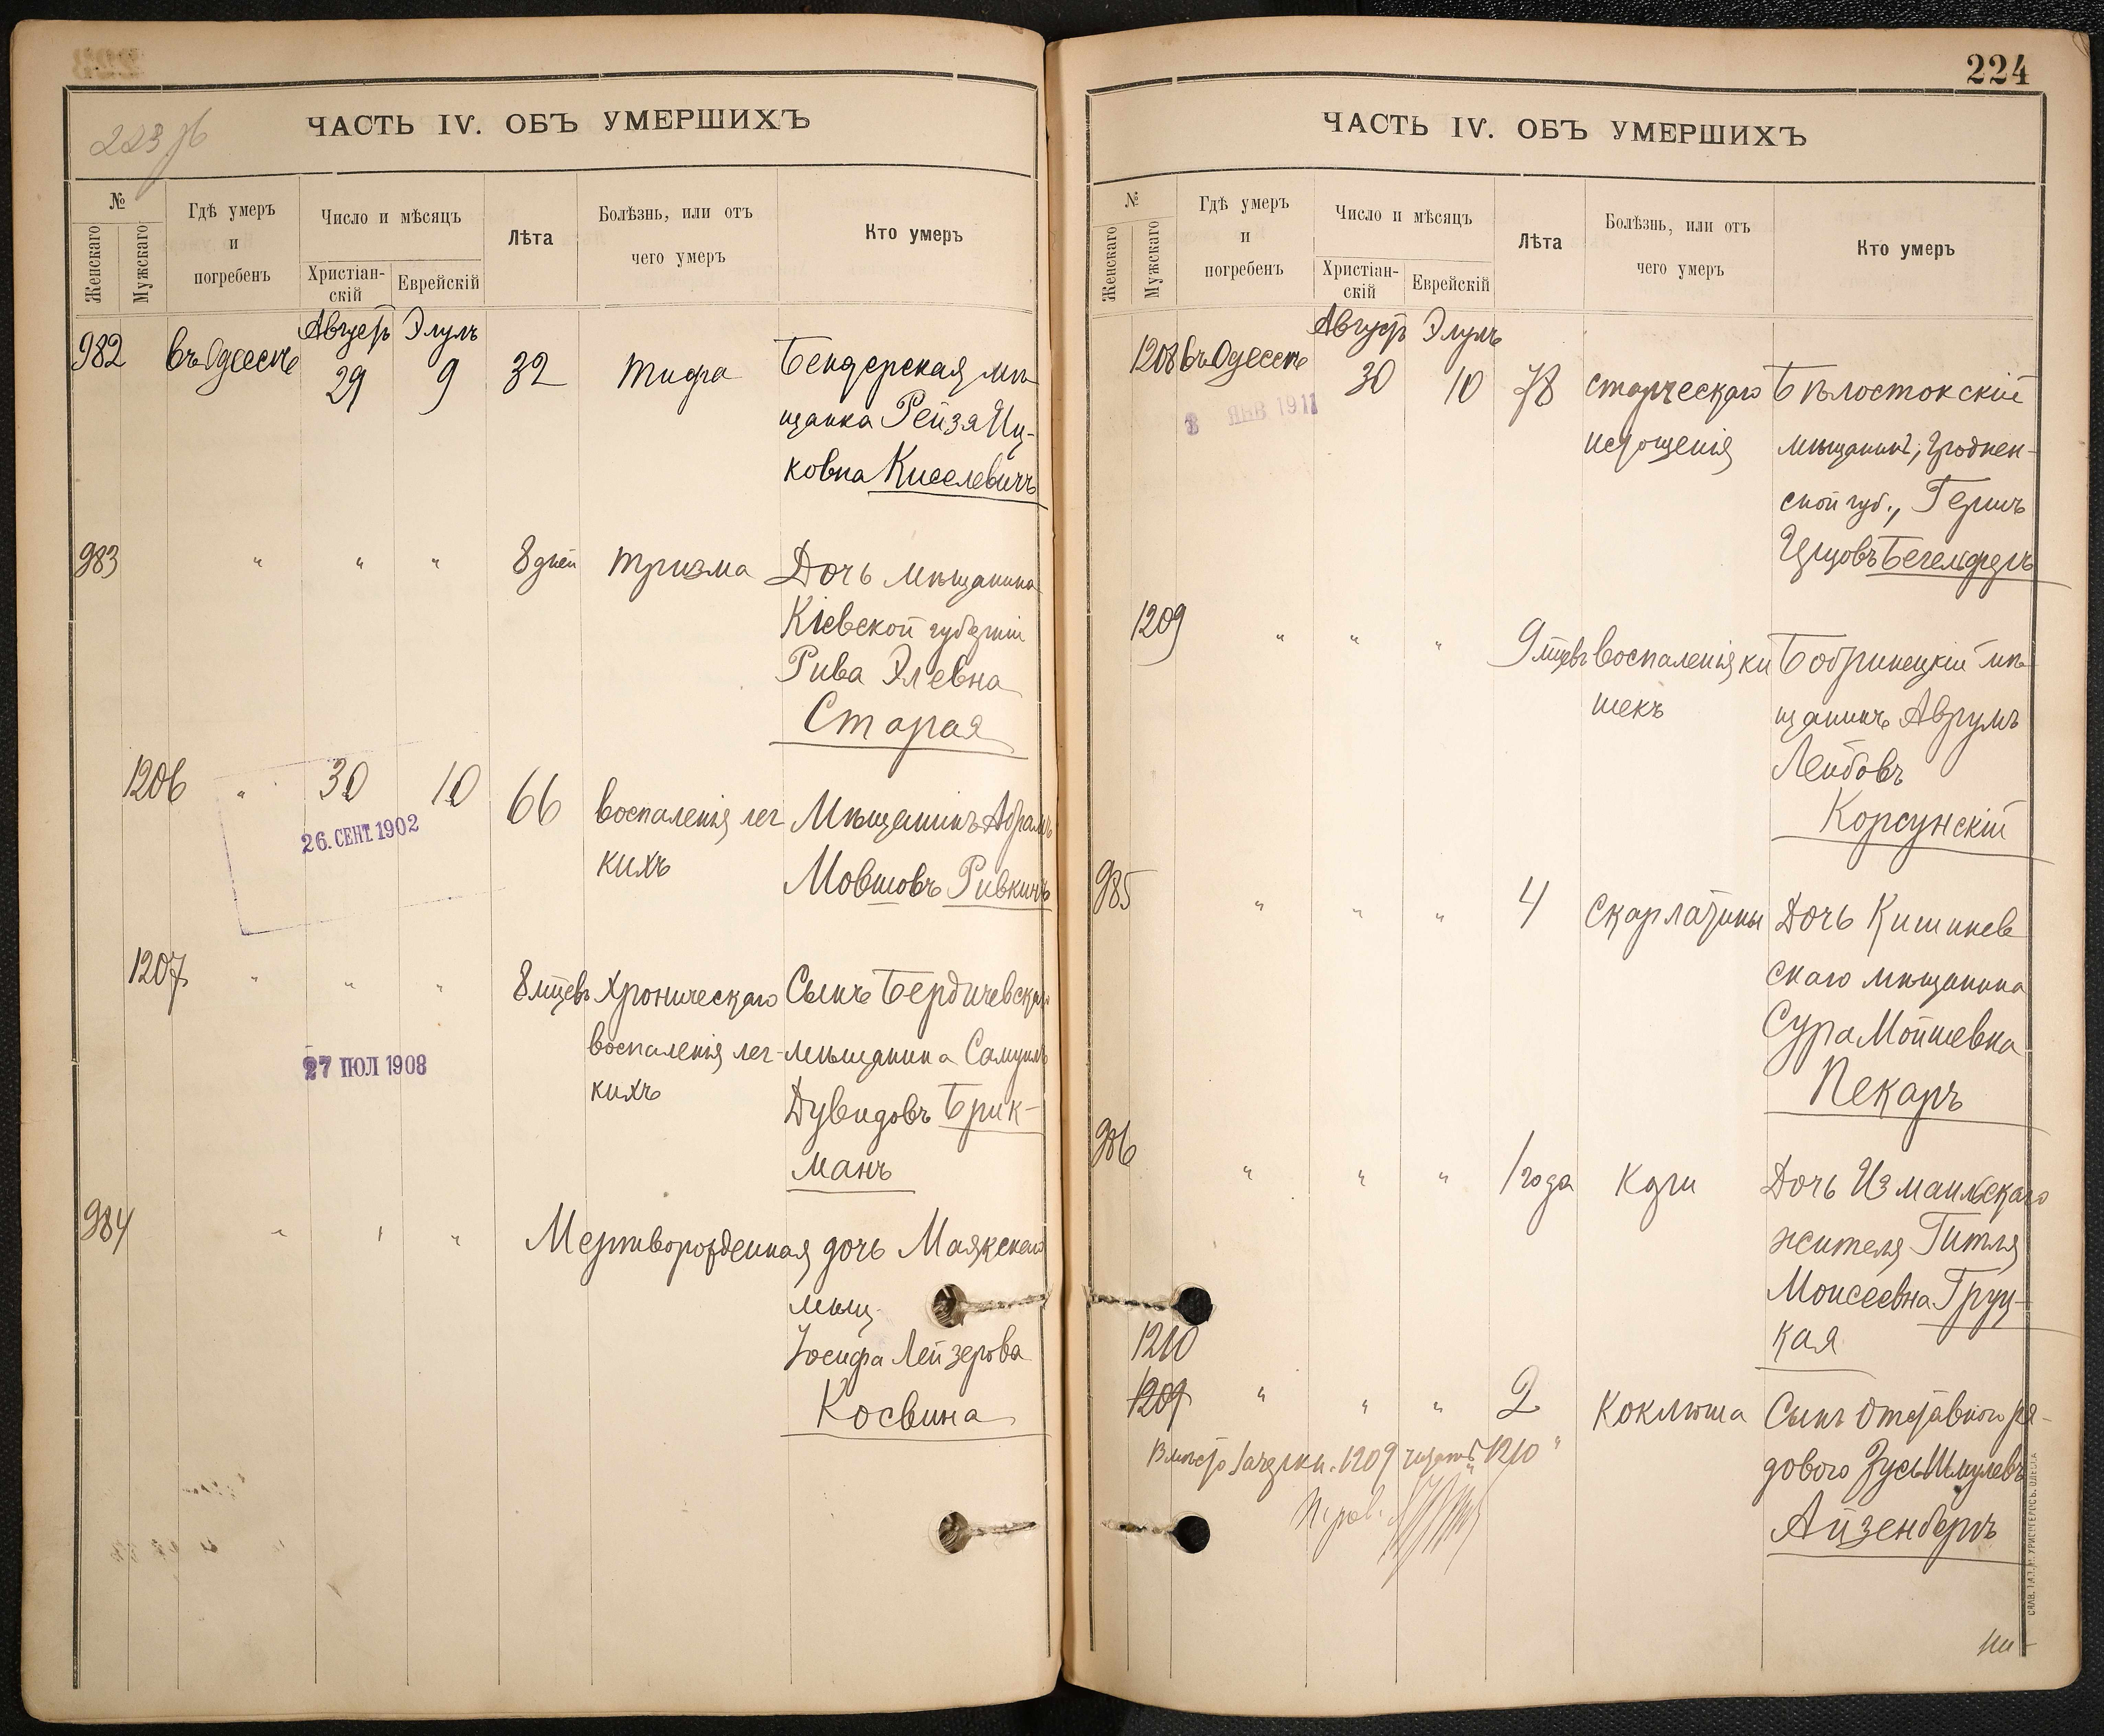 223 об
ЧАСТЬ IV. ОБЪ УМЕРШИХЪ
№
Женскаго
Мужскаго
Гдѣ умеръ
и
погребенъ
Число и мѣсяцъ
Христіан-
скій
Еврейскій
Лѣта
Болѣзнь, или отъ
чего умеръ
Кто умеръ
Августъ Элулъ
982 въ Одессѣ 29 9 32 тифа Бендерская мѣ-
щанка Рейзя Иц-
ковна Киселевичъ
983 " " " 8 дней тризма Дочь мѣщанина
Кіевской губерніи
Рива Элевна
Старая
1206 " 30 10 66 воспаленія лег Мѣщанинъ Абрамъ
кихъ Мовшовъ Ривкинъ
26. СЕНТ. 1902
1207 " " " 8 мцевъ Хроническаго Сынъ Бердичевскаго
воспаленія лег- мѣщанина Самуилъ
кихъ Дувидовъ Брик-
манъ
27 ІЮЛ 1908
984 " " " Мертворожденная дочь Маякскаго
мѣщ.
Іосифа Лейзерова
Косвина
224
ЧАСТЬ IV. ОБЪ УМЕРШИХЪ
№
Женскаго
Мужскаго
Гдѣ умеръ
и
погребенъ
Число и мѣсяцъ
Христіан-
скій
Еврейскій
Лѣта
Болѣзнь, или отъ
чего умеръ
Кто умеръ
Августъ Элулъ
1208 въ Одессѣ 30 10 78 старческаго Бѣлостокскій
истощенія мѣщанинъ, Гроднен-
ской губ., Гершъ
ЯНВ 1911
1209 " " " 9 мцевъ воспаленія ки Бобринецкій мѣ-
шекъ щанинъ Аврумъ
Лейбовъ
Корсунскій
985 " " " 4 Скарлатины Дочь Кишинев
скаго мѣщанина
Сура Мойшевна
Пекаръ
986 " " " 1 года Кори Дочь Измаильскаго
жителя Гитля
Моисеевна Груц-
кая
1210
1209 " " " 2 Коклюша Сынъ отставного ря-
дового Зусь Шмулевъ
Айзенбергъ
Вмѣсто зачеркн. 1209 читать "1210"
САЛВ. ТИП. И. ХРИСОГЕЛОСЪ. ОДЕССА